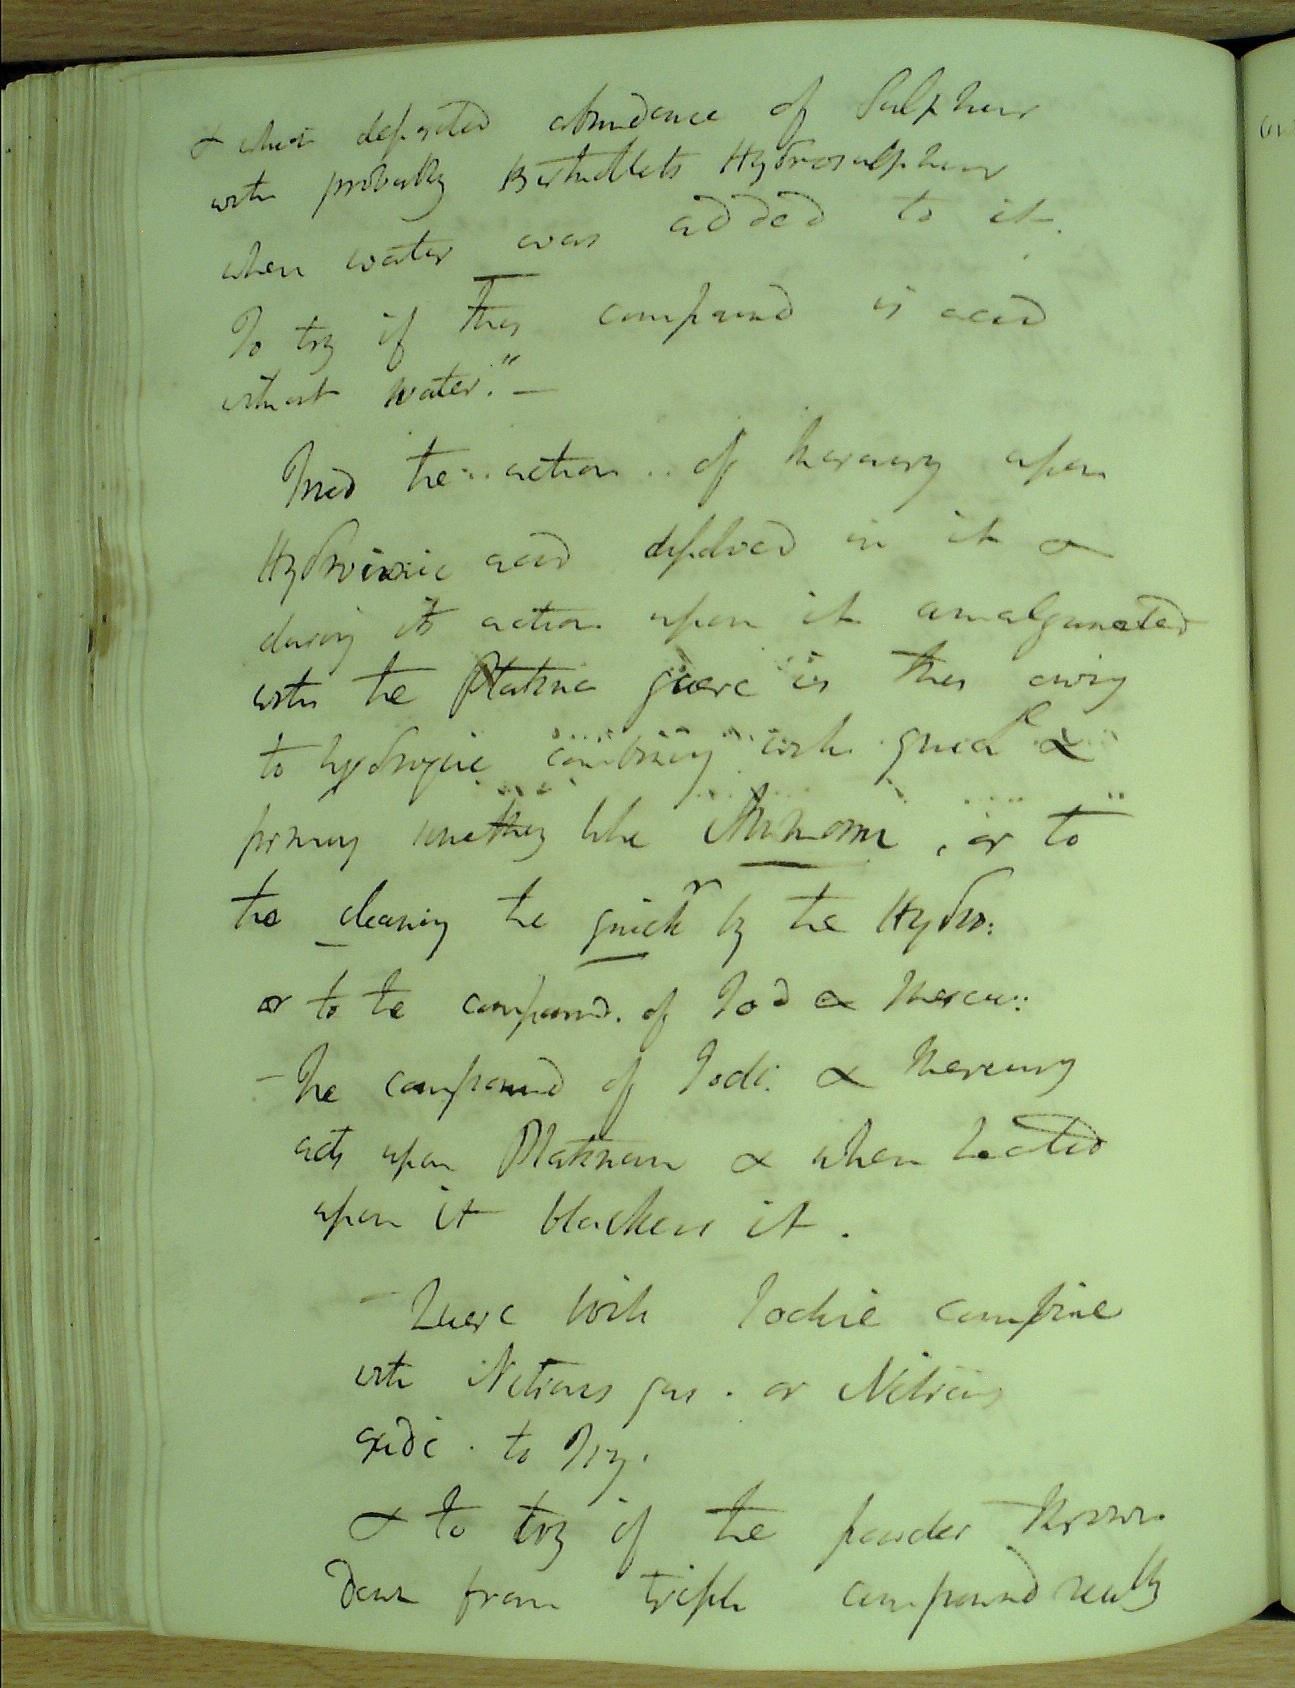 & which deposited abundance of Sulphur
with probably Berthollets Hydrosulphur
when water was added to it.
To try if this compound is acid
without water." —
Tried the action of Mercury upon
Hydroionic acid dissolved in it &
during its action upon it amalgamated
with the Platina quere is this owing
to hydrogene combining with quick &
forming something like Ammonm, or to
the cleaning the quickr by the Hydro:
or to the compound. of Iod & Mercu:
– The compound of Iode: & Mercury
acts upon Platinum & when heated
upon it blackens it.
– Quere will Iodine combine
with Nitrous gas . or Nitrous
oxide . to Try.
& to try if the powder thrown
down from triple compound really